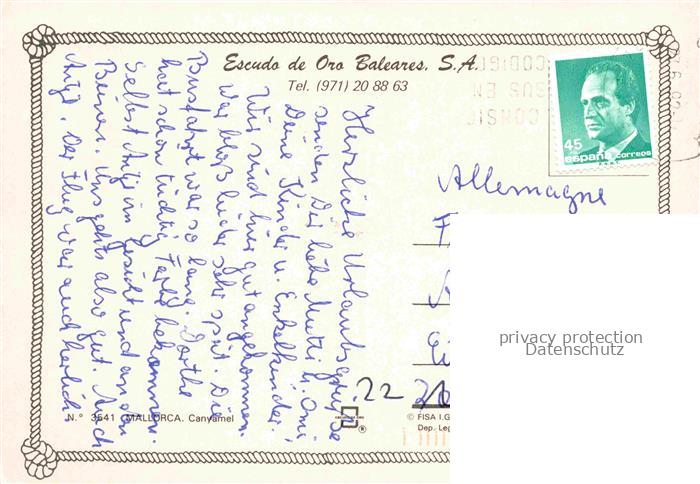 Escudo de Oro Baleares, S.A.
Tel. (971) 20 88 63
CODIGO
SUS EN
CONSIG
45
españa correos
Herzliche Urlaubsgrüße
senden Dir liebe Mutti u. Omi
Deine Kinder u. Enkelkinder.
Wir sind hier gut angekommen.
War bloß leider sehr spät. Die
Busfahrt war so lang. Dörthe
hat schon tüchtig Farbe bekommen.
Selbst Antje im Gesicht und an den
Beinen. Uns gehts also gut. Auch
Antje. Der Flug war auch herrlich.
Allemagne
22
N.º 3541 MALLORCA. Canyamel
®
© FISA I.G.
Dep. Leg
privacy protection
Datenschutz